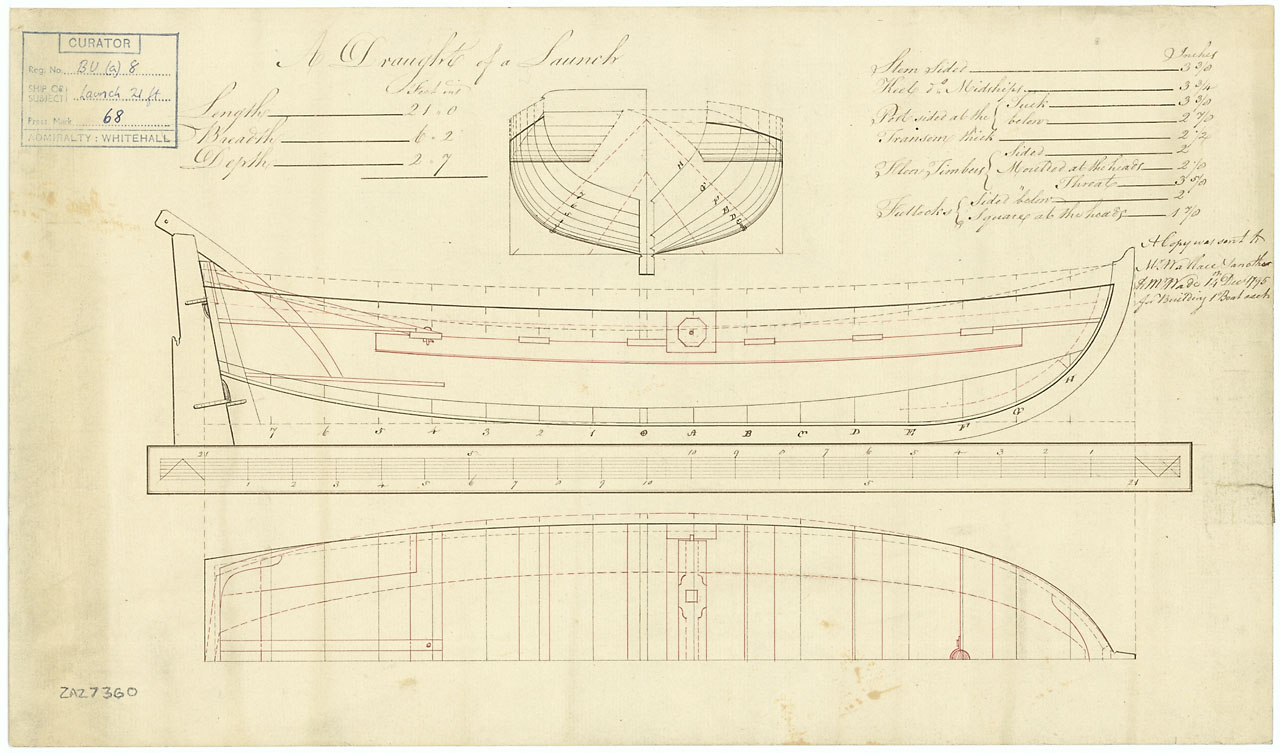 CURATOR
Reg. No. BU (a) 8
SHIP OR SUBJECT: Launch 21 ft.
Press Mark 68
ADMIRALTY: WHITEHALL
A Draught of a Launch
Feet ins
Length 21 " 0
Breadth 6 " 2
Depth 2 " 7
Inches
Stem Sided 3 3/8
Keel Do Midships 3 3/4
Post sided at the { Tuck 3 3/8
below 2 7/8
Transom thick 2 1/2
Floor Timbers { Sided 2
Moulded at the heads 2 1/8
Throat 3 5/8
Futtocks { Sided below 2
Square at the heads 1 7/8
A Copy was sent to
Mr Wallace & another
to Mr Wade 14th Decr 1795
for Building 1 Boat each
H G F
H
G
7 6 5 4 3 2 1 A B C D E F
21 5 10 9 8 7 6 5 4 3 2 1
1 2 3 4 5 6 7 8 9 10 5 21
ZAZ7360